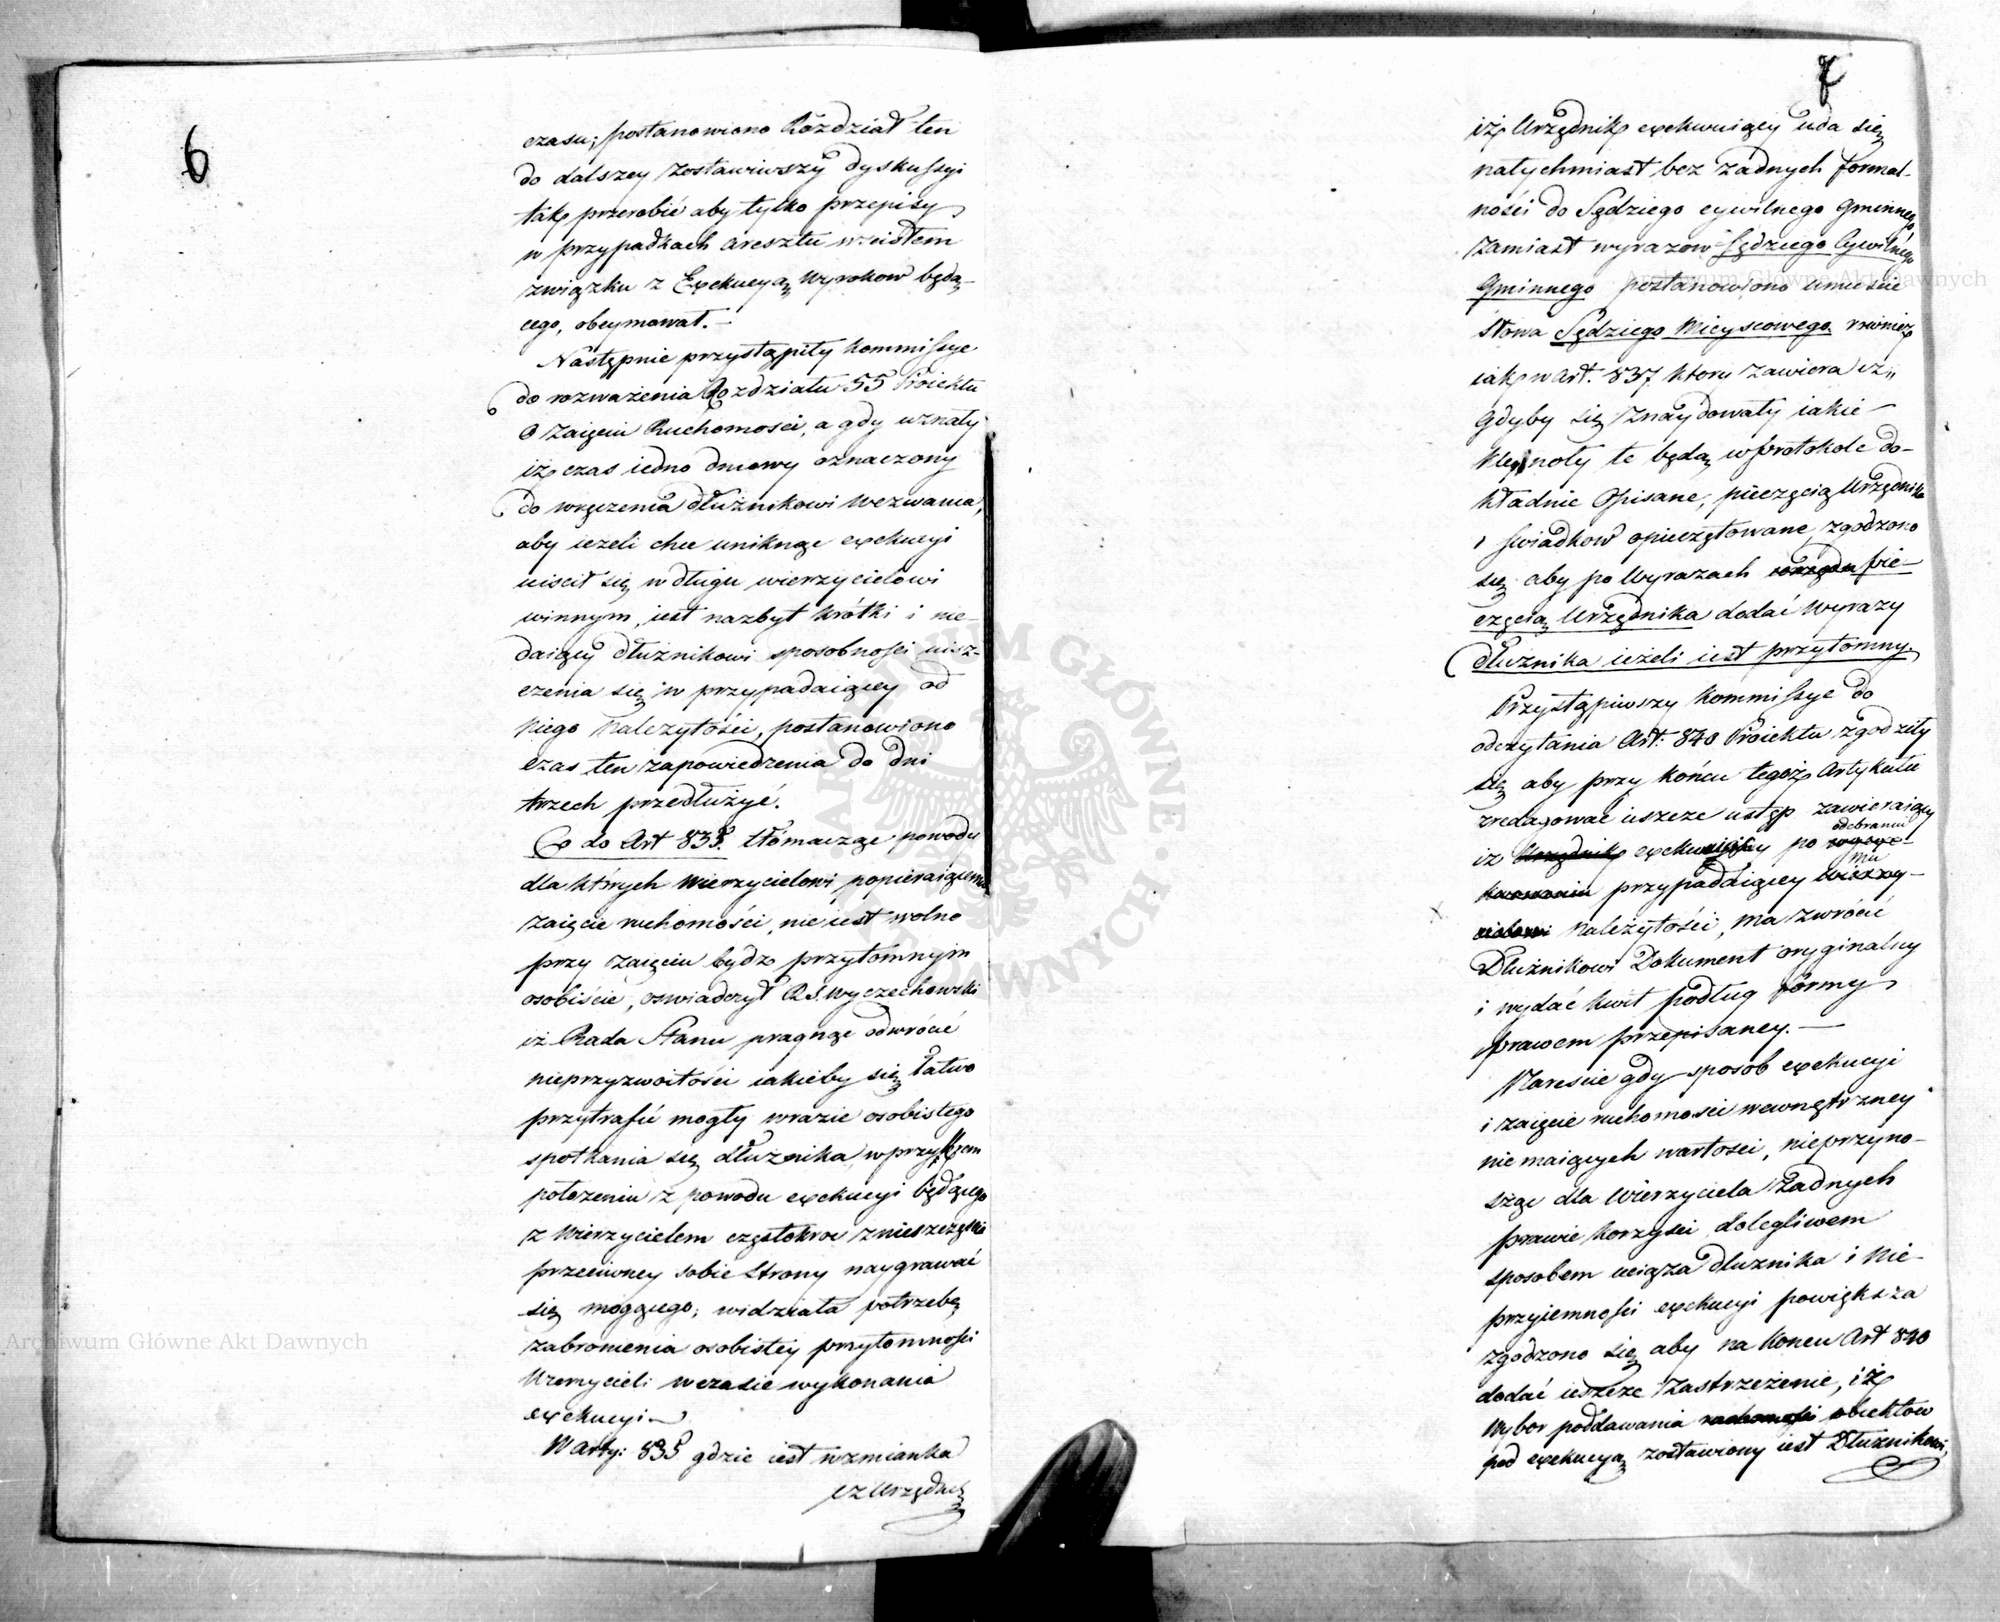 6
czasu; postanowiono Rozdział ten
do dalszey zostawiwszy dyskussyi
tak przerobić aby tylko przepisy
w przypadkach aresztu w ścisłem
związku z Exekucyą Wyrokow będą-
cego, obeymował.–
Następnie przystąpiły Kommissye
do rozważenia Rozdziału 55 Proiektu
o Zaięciu Ruchomosci, a gdy uznały
iż czas iedno dniowy oznaczony
do wręczenia dłużnikowi wezwania,
aby ieżeli chce uniknąć exekucyi
uiscił się w długu wierzycielowi
winnym, iest nazbyt krótki i nie-
daiący dłużnikowi sposobności uisz-
czenia się w przypadaiącey od
niego należytości, postanowiono
czas ten zapowiedzenia do dni
trzech przedłużyć.
Co do Art 835. tłómacząc powody
dla których Wierzycielowi popieraiącemu
zaięcie ruchomości, nie iest wolno
przy zaięciu bydź przytomnym
osobiście, oswiadczył R.S. Wyczechowski
iż Rada Stanu pragnąc odwrócić
nieprzyzwoitości iakieby się łatwo
przytrafić mogły w razie osobistego
spotkania się dłużnika, w przykrem
położeniu z powodu exekucyi będącego
z Wierzycielem częstokroć z nieszczęścia
przeciwney sobie Strony naygrawać
się mogącego; widziała potrzebę
zabronienia osobistey przytomności
Wierzycieli w czasie wykonania
exekucyi–
W Arty: 835 gdzie iest wzmianka
iż Urzędnik
7
iż Urzędnik exekwuiący uda się
natychmiast bez żadnych formal-
ności do Sędziego cywilnego Gminnego
zamiast wyrazow Sędziego Cywilnego
Gminnego postanowiono umieścić
słowa Sędziego Mieyscowego rownież
iak w Art. 837 który zawiera iż
Gdyby się znaydowały iakie
kleynoty te będą w protokole do-
kładnie Opisane, pieczęcią Urzędnika
i swiadkow opieczętowane, zgodzono
się aby po Wyrazach pie-
częcią Urzędnika dodać wyrazy
dłużnika ieżeli iest przytomny.
Przystąpiwszy Kommissye do
odczytania Art: 840 Proiektu zgodziły
się aby przy końcu tegoż Artykułu
zredagować ieszcze ustęp zawieraiący
iż Urzędnik exekwuiący po odebraniu
przypadaiącey mu
należytości, ma zwrócić
Dłużnikowi Dokument oryginalny
i wydać kwit podług formy
prawem przepisaney.–
Nareście gdy sposob exekucyi
i zaięcie ruchomosci wewnętrzney
nie maiących wartosci, nieprzyno-
sząc dla Wierzyciela żadnych
prawie korzyści dolegliwem
sposobem uciąża dłużnika i nie-
przyiemności exekucyi powiększa
zgodzono się aby na końcu Art 840
dodać ieszcze Zastrzeżenie, iż
Wybor poddawania ruchomości obiektow
pod exekucyą zostawiony iest Dłużnikowi,
Archiwum Główne Akt Dawnych
Archiwum Główne Akt Dawnych
ARCHIWUM GŁÓWNE AKT DAWNYCH